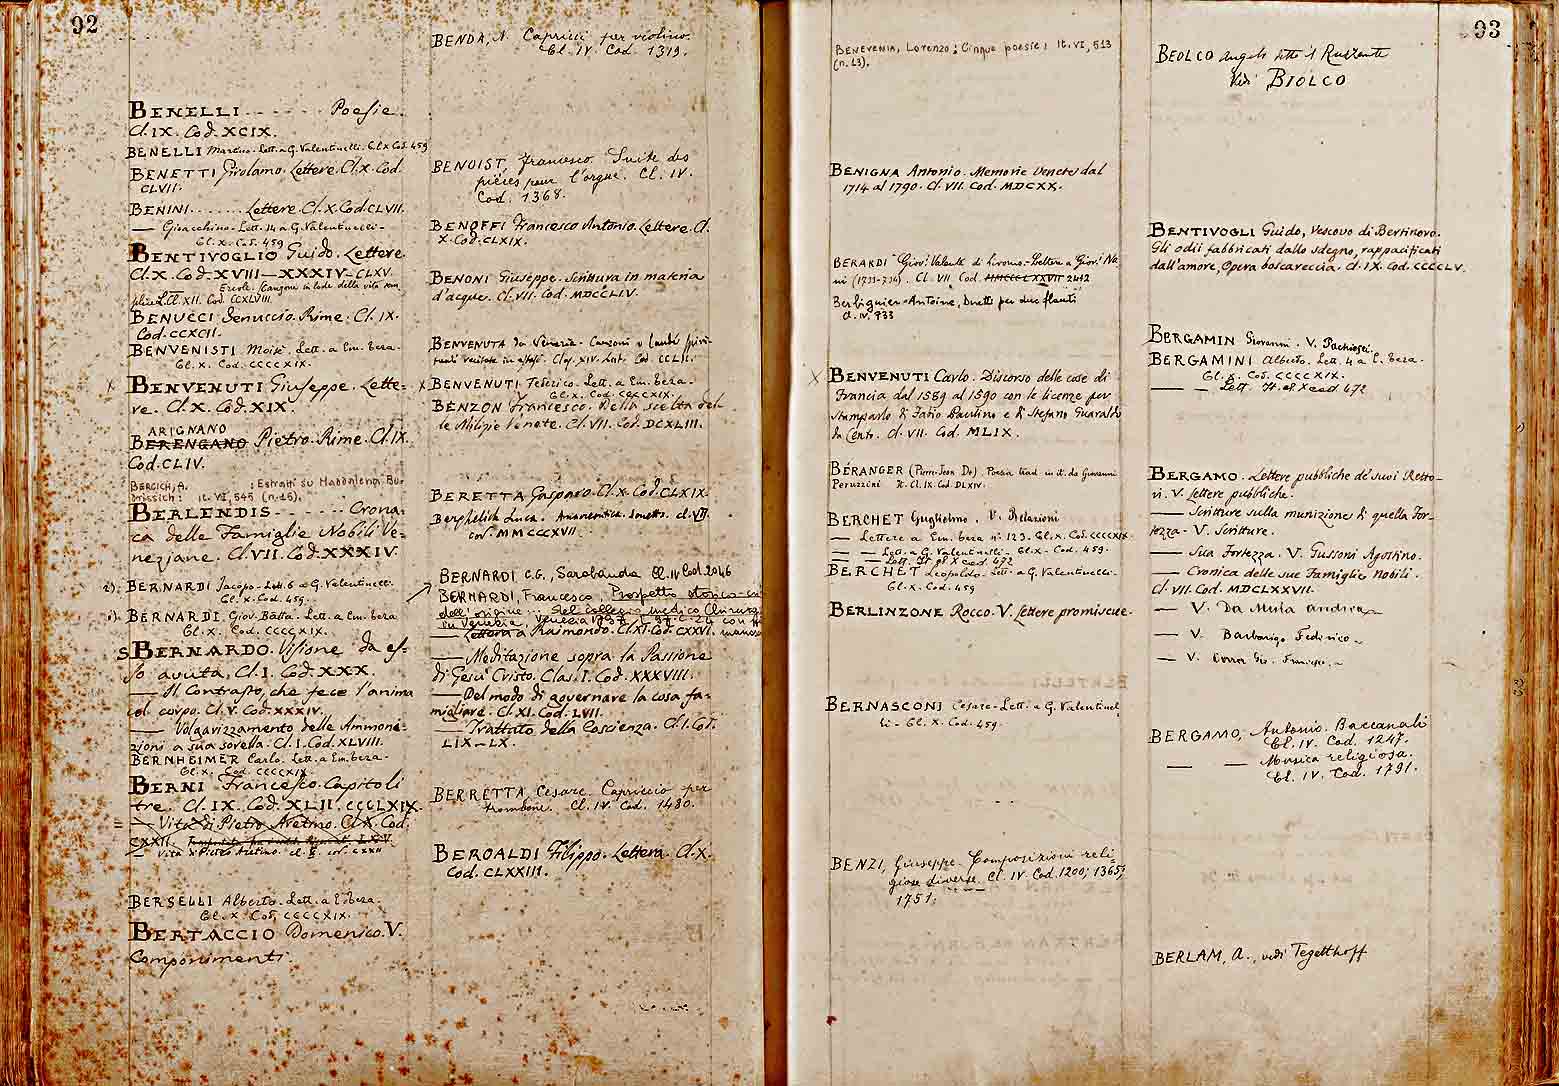 92
BENELLI - - - - - - Poesie.
Cl. IX. Cod. XCIX.
BENELLI Lett. a G. Valentinelli. Cl. X Cod. 459
BENETTI Girolamo. Lettere. Cl. X. Cod.
CLVII.
BENINI....... Lettere. Cl. X. Cod. CLVII.
— Gioacchino - Lett. 14 a G. Valentinelli -
Cl. X. Cod. 459
BENTIVOGLIO Guido. Lettere.
Cl. X. Cod. XVIII — XXXIV — CLXV.
Ercole. Canzone in lode della vita
Cl. XII. Cod. CCXLVIII.
BENUCCI Senuccio. Rime. Cl. IX.
Cod. CCXCII.
BENVENISTI Moisè. Lett. a Em. Cera.
Cl. X. Cod. CCCCXIX.
x BENVENUTI Giuseppe. Lette-
re. Cl. X. Cod. XIX.
ARIGNANO
BERENGANO Pietro. Rime. Cl. IX.
Cod. CLIV.
BERCICH, A. : Estratti su Maddalena
: It. VI, 545 (n. 16).
BERLENDIS - - - - - - Crona-
ca delle Famiglie Nobili Ve-
neziane. Cl. VII. Cod. XXXIV.
2). BERNARDI Jacopo - Lett. 6 a G. Valentinelli
Cl. X. Cod. 459
1). BERNARDI. Giov. Batta. Lett. a Em. Cera
Cl. X. Cod. CCCCXIX.
S. BERNARDO. Visione da es-
so avuta, Cl. I. Cod. XXX.
— Il Contrasto, che fece l'anima
col corpo. Cl. V. Cod. XXXIV.
— Volgarizzamento delle Ammoni-
zioni a sua sorella. Cl. I. Cod. XLVIII.
BERNHEIMER Carlo. Lett. a Em. Cera -
Cl. X. Cod. CCCCXIX.
BERNI Francesco. Capitoli
tre. Cl. IX. Cod. XLII. CCCLXIX
— Vita di Pietro Aretino. Cl. X. Cod.
CXXII.
Vita di Pietro Aretino. Cl. X. Cod. CXXII
BERSELLI Alberto. Lett. a E. Cera.
Cl. X. Cod. CCCCXIX.
BERTACCIO Domenico. V.
Componimenti.
BENDA, A. Capricci per violino.
Cl. IV. Cod. 1319.
BENOIST, Francesco. Suite des
pièces pour l'orgue. Cl. IV.
Cod. 1368.
BENOFFI Francesco Antonio. Lettere. Cl.
X. Cod. CLXIX.
BENONI Giuseppe. Scrittura in materia
d'acque. Cl. VII. Cod. MDCCLIV.
BENVENUTA da Venezia - Canzoni o laudi spiri-
tuali recitate in estasi. Clas. XIV. Lat. Cod. CCLII.
x BENVENUTI. Federico. Lett. a Em. Cera.
Cl. X. Cod. CCCCXIX.
BENZON Francesco. Della scelta del-
le Milizie Venete. Cl. VII. Cod. DCXLIII.
BERETTA Gasparo. Cl. X. Cod. CLXIX.
Berghelich Luca. Anacreontica. Sonetto. Cl. VII.
Cod. MMCCCXVII.
BERNARDI C. G., Sarabanda Cl. IV Cod. 2046
BERNARDI, Francesco, Prospetto storico-cri
dell'origine ... del collegio medico Chirurgi
in Venezia, Venezia
— Lettera a Raimondo. Cl. XI. Cod. CXXVI.
— Meditazione sopra la Passione
di Gesù Cristo. Clas. I. Cod. XXXVIII.
— Del modo di governare la cosa fa-
migliare. Cl. XI. Cod. LVII.
— Trattato della Coscienza. Cl. I. Cod.
LIX — LX.
BERRETTA, Cesare. Capriccio per
trombone. Cl. IV. Cod. 1480.
BEROALDI Filippo. Lettera. Cl. X.
Cod. CLXXIII.
93
BENEVENIA, Lorenzo: Cinque poesie: It. VI, 513
(n. 13).
BENIGNA Antonio. Memorie Venete dal
1714 al 1790. Cl. VII. Cod. MDCXX.
BERARDI Giov. Valente di Livorno - Lettere a Giov. Na-
ni (1793-794). Cl. VII. Cod. 2412
Berbiguier - Antoine, Duetti per due flauti
Cl. IV. 933
x BENVENUTI Carlo. Discorso delle cose di
Francia dal 1589 al 1590 con le licenze per
stamparlo di Fabio Paulino e di Stefano Guaraldo
da Cento. Cl. VII. Cod. MLIX.
BÉRANGER (Pierre-Jean De). Poesia trad. in it. da Giovanni
Peruzzini It. Cl. IX. Cod. DLXIV.
BERCHET Guglielmo. V. Relazioni
— Lettere a Em. Cera n. 123. Cl. X. Cod. CCCCXIX.
— — Lett. a G. Valentinelli - Cl. X - Cod. 459.
— — Lett. It. cl X cod 472
BERCHET Leopoldo. Lett. a G. Valentinelli.
Cl. X. Cod. 459
BERLINZONE Rocco. V. Lettere promiscue.
BERNASCONI Cesare - Lett. a G. Valentinel-
li - Cl. X. Cod. 459.
BENZI, Giuseppe. Composizioni reli-
giose diverse. Cl. IV. Cod. 1200; 1365;
1751.
BEOLCO Angelo detto il Ruzzante
Vedi BIOLCO
BENTIVOGLI Guido, Vescovo di Bertinoro.
Gli odii fabbricati dallo sdegno, rappacificati
dall'amore, Opera boscareccia. Cl. IX. Cod. CCCCLV.
BERGAMIN Giovanni. V. Pachioseri.
BERGAMINI Alberto. Lett. 4 a E. Cera.
Cl. X. Cod. CCCCXIX.
— — Lett. It. cl X cod 472
BERGAMO. Lettere pubbliche de' suoi Retto-
ri. V. Lettere pubbliche.
— Scritture sulla munizione di quella For-
tezza - V. Scritture.
— Sua Fortezza. V. Gussoni Agostino.
— Cronica delle sue Famiglie nobili.
Cl. VII. Cod. MDCLXXVII.
— V. Da Mula Andrea
— V. Barbarigo Federico
— V.
BERGAMO, Antonio. Baccanali
Cl. IV. Cod. 1247.
— — Musica religiosa.
Cl. IV. Cod. 1791.
BERLAM, A., vedi Tegetthoff